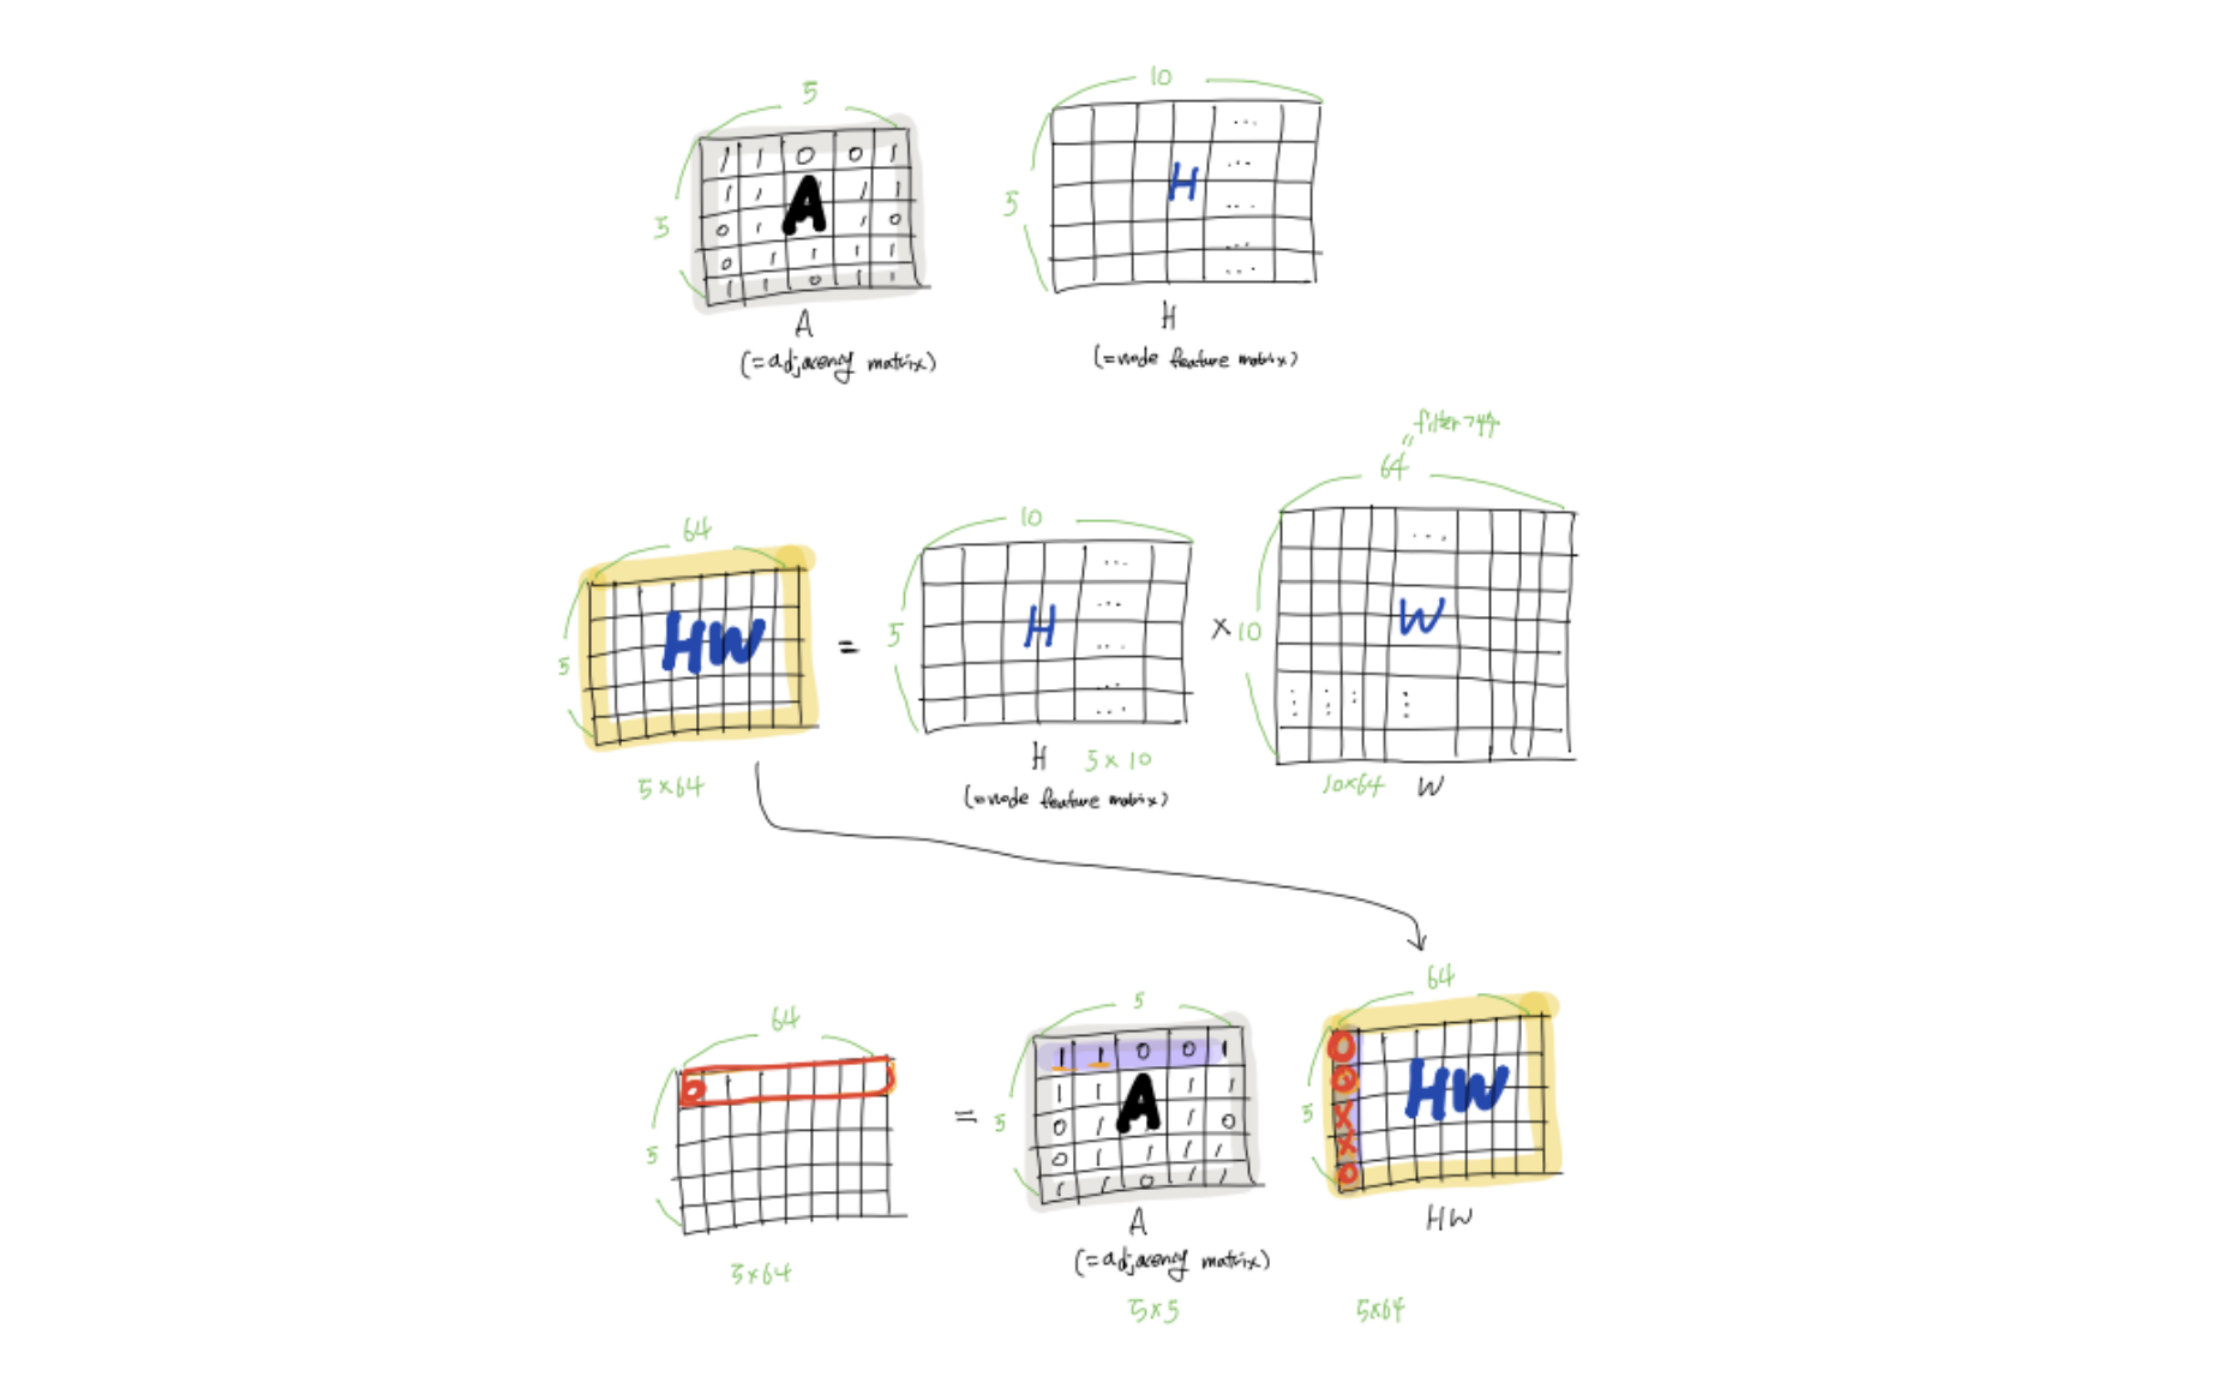 5 10
1 1 0 0 1
1 1 1 1
0 1 1 0
0 1 1 1 1
1 1 0 1 1
A
5
...
...
...
...
...
H
5
A
(=adjacency matrix)
H
(=node feature matrix)
filter
"
64
64
5
HW
5×64
=
10
5
...
...
...
...
...
H
H 5×10
(=node feature matrix)
×
10
...
W
10×64 W
64
5
5×64
=
5
5
1 1 0 0 1
1 1 1 1
0 1 1 0
0 1 1 1 1
1 1 0 1 1
A
A
(=adjacency matrix)
5×5
64
5
O
O
X
X
O
HW
HW
5×64